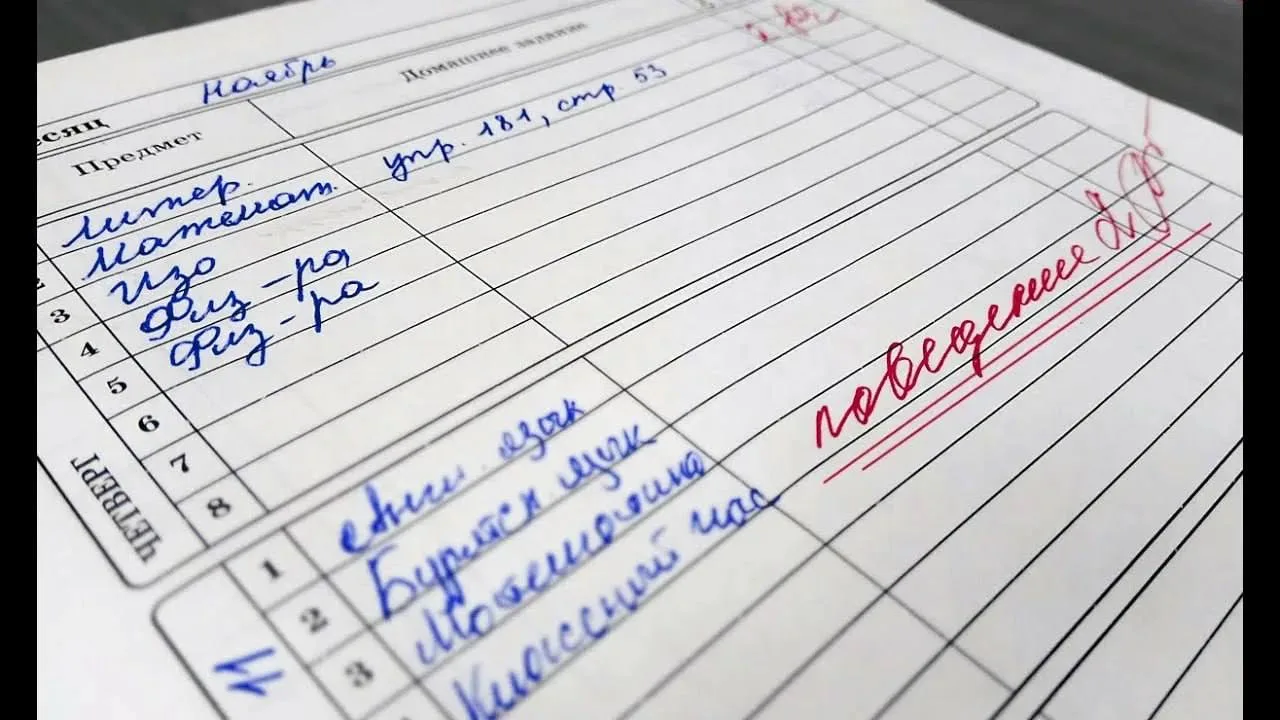 Ноябрь
есяц
Предмет
Домашнее задание
Литер.
Математ. упр. 181, стр 53
3 Изо
4 Физ-ра
5 Физ-ра
6
7
8
ЧЕТВЕРГ
поведение 2
1 Англ. язык
2 Бурятск. язык
3 Математика
Классный час
11